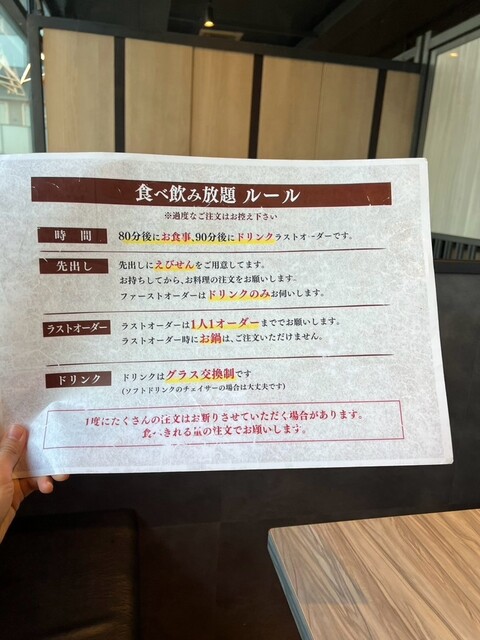 食べ飲み放題 ルール
※過度なご注文はお控え下さい
時間 80分後にお食事、90分後にドリンクラストオーダーです。
先出し 先出しにえびせんをご用意してます。
お持ちしてから、お料理の注文をお願いします。
ファーストオーダーはドリンクのみお伺いします。
ラストオーダー ラストオーダーは1人1オーダーまででお願いします。
ラストオーダー時にお鍋は、ご注文いただけません。
ドリンク ドリンクはグラス交換制です
(ソフトドリンクのチェイサーの場合は大丈夫です)
1度にたくさんの注文はお断りさせていただく場合があります。
食べきれる量の注文でお願いします。